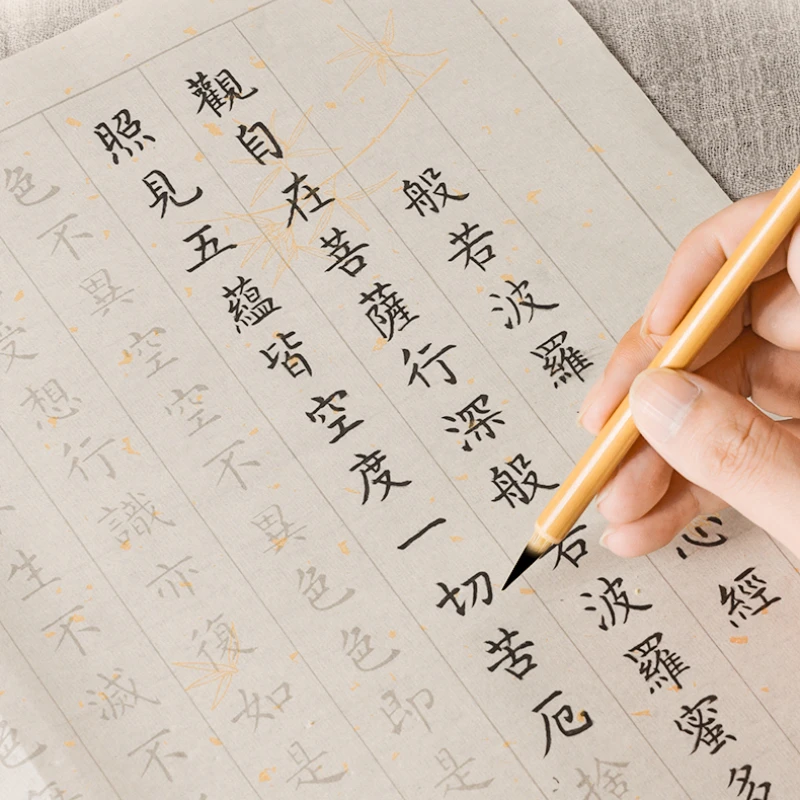 般若波羅心經
觀自在菩薩行深般若波羅蜜多
照見五蘊皆空度一切苦厄捨
色不異空空不異色色即是
受想行識亦復如是
生不滅不
色